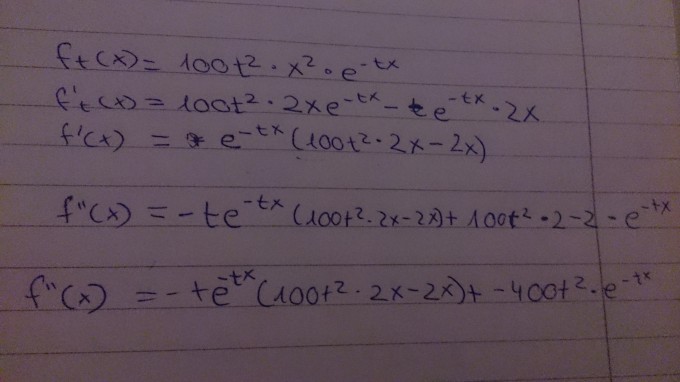 f_t(x) = 100t² · x² · e^(-tx)
f'_t(x) = 100t² · 2xe^(-tx) - te^(-tx) · 2x
f'(x) = e^(-tx) (100t² · 2x - 2x)
f''(x) = -te^(-tx) (100t² · 2x - 2x) + 100t² · 2 - 2 · e^(-tx)
f''(x) = -te^(-tx) (100t² · 2x - 2x) + -400t² · e^(-tx)